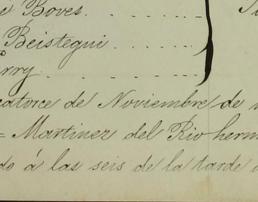 Boves.
Beistegui
de Noviembre de
= Martinez del Rio herm
do á las seis de la tarde